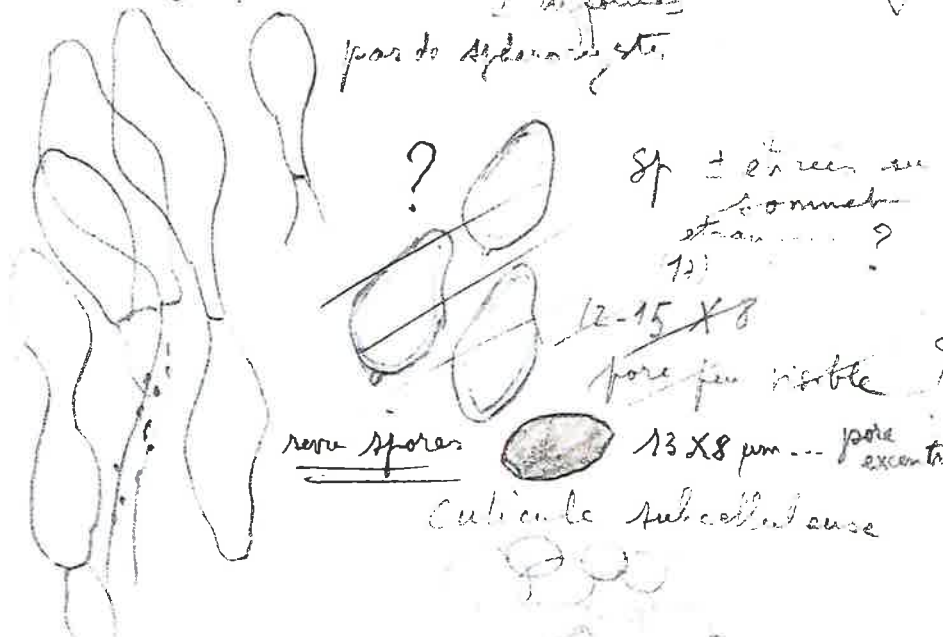 pas de sphérocyste
?
Sp ± étrécies au
sommet
et au ?
12-15 X 8
pore peu visible ?
revu spores 13 X 8 µm... pore
excent
Cuticule subcelluleuse